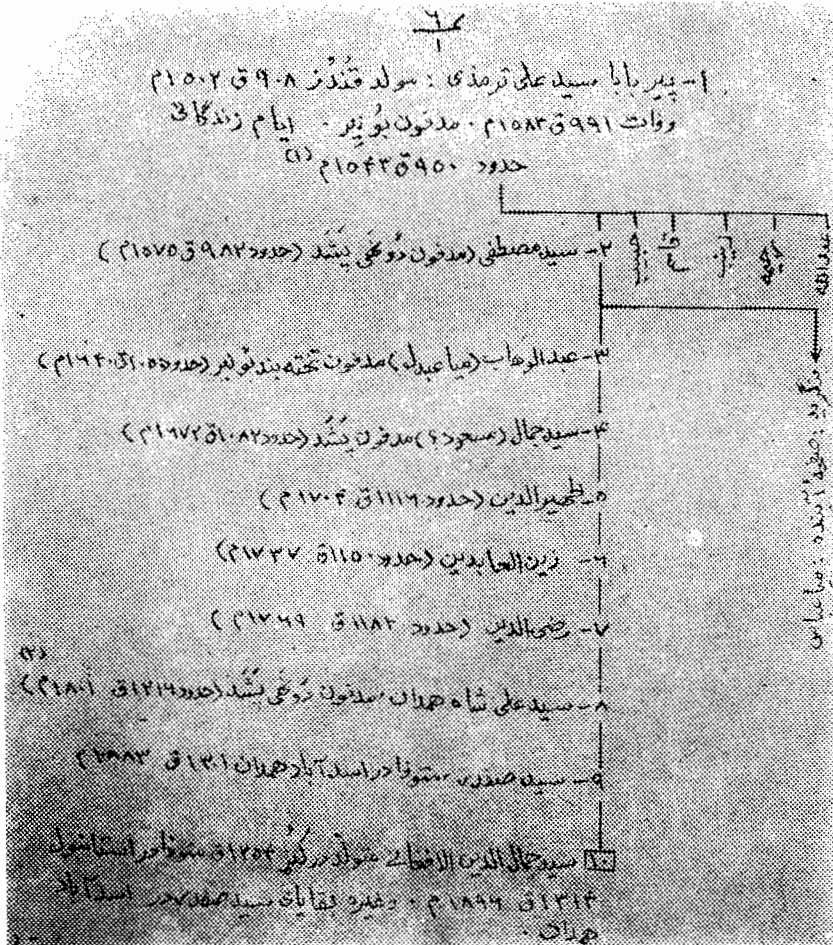 ۶
۱
۱- پیر بابا سید علی ترمذی : مولد قُندُز ۹۰۸ ق ۱۵۰۲م
وفات ۹۹۱ ق ۱۵۸۳م . مدفون بُونیر . ایام زندگانی
حدود ۹۵۰ ق ۱۵۴۳م (۱)
۲- سید مصطفی (مدفون دُوغَی پَشَد (حدود ۹۸۲ ق ۱۵۷۵م)
عبدالله
۳- عبدالوهاب (میا عبدل) مدفون تخته بند بونیر (حدود
۴- سید جمال (مسعود؟) مدفون پَشَد (حدود ۱۰۸۲ ق ۱۶۷۲م)
۵- ظهیرالدین (حدود ۱۱۱۶ ق ۱۷۰۴م)
۶- زین العابدین (حدود ۱۱۵۰ ق ۱۷۳۷م)
۷- رضی الدین (حدود ۱۱۸۲ ق ۱۷۶۹م)
(۲)
۸- سید علی شاه همدان، مدفون دُوغَی پَشَد (حدود ۱۲۱۶ ق ۱۸۰۱م)
۹- سید صفدر، متوفا در اسدآباد همدان ۱۳۰۱ ق ۱۸۸۳م
۱۰ سید جمال الدین الافغانی متولد در کُنَر ۱۲۵۴ ق متوفا در استانبول
۱۳۱۴ ق ۱۸۹۶م . وغیره بقایای سید صفدر در اسدآباد
همدان .
وگرید : صفحهٔ آینده : میا عباس